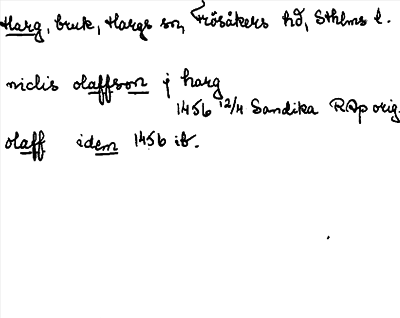 Harg, bruk, Hargs sn, Frösåkers hd, Sthlms l.
niclis olaffson j harg
1456 12/4 Sandika RAp orig.
olaff idem 1456 ib.